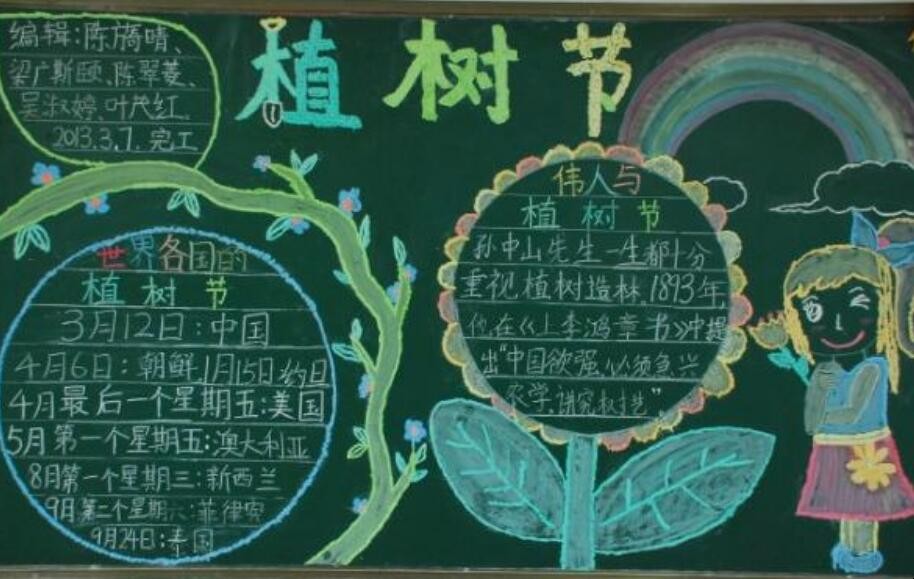 编辑:陈旖晴、
梁广斯颐、陈翠菱、
吴淑婷、叶茂红.
2013.3.7.完工
植树节
世界各国的
植树节
3月12日:中国
4月6日:朝鲜 1月15日:约旦
4月最后一个星期五:美国
5月第一个星期五:澳大利亚
8月第一个星期三:新西兰
9月第二个星期六:菲律宾
9月24日:泰国
伟人与
植树节
孙中山先生一生都十分
重视植树造林.1893年
他在《上李鸿章书》中提
出“中国欲强,必须急兴
农学,讲究树艺”.